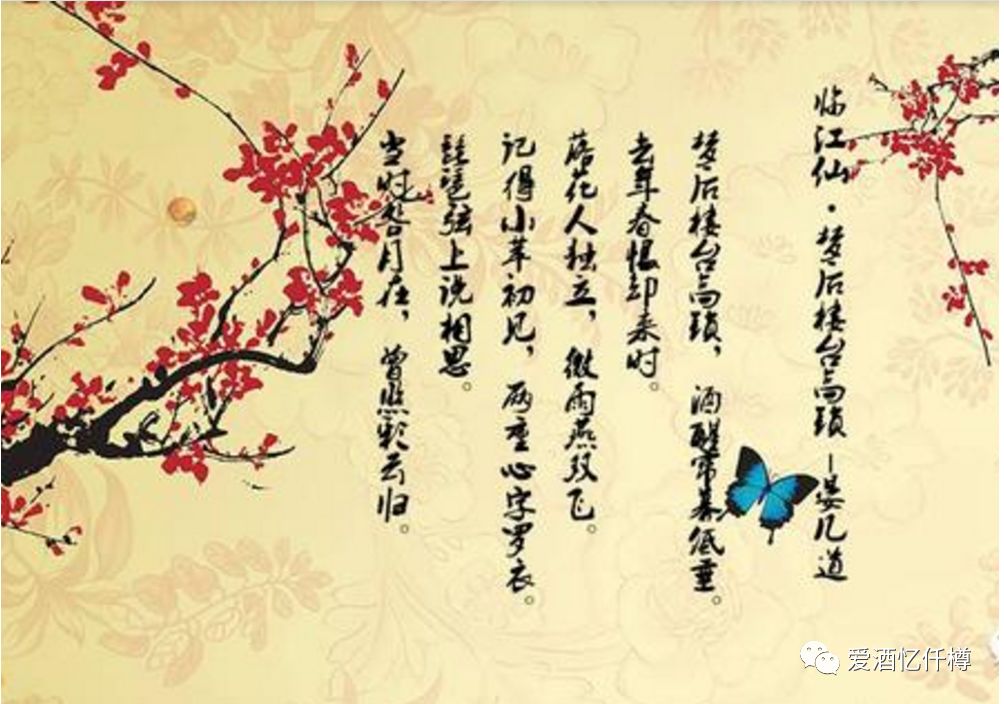 临江仙·梦后楼台高锁—晏几道
梦后楼台高锁，酒醒帘幕低垂。
去年春恨却来时。
落花人独立，微雨燕双飞。
记得小苹初见，两重心字罗衣。
琵琶弦上说相思。
当时明月在，曾照彩云归。
爱酒忆仟樽